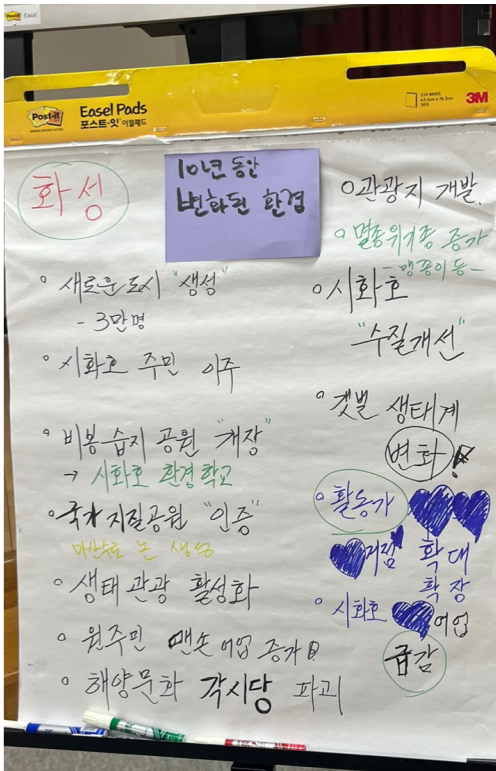 Post-it Easel
Post-it
Easel Pads
포스트-잇 이젤패드
3M
화성
10년 동안
변화된 환경
○ 새로운 도시 "생성"
- 3만명
○ 시화호 주민 이주
○ 비봉 습지 공원 "개장"
→ 시화호 환경학교
○ 국가지질공원 "인증"
마산수로 논 생성
○ 생태관광 활성화
○ 원주민 맨손 어업 증가
○ 해양문화 각시당 파괴
○ 관광지 개발.
○ 멸종위기종 증가
- 맹꽁이 등 -
○ 시화호
"수질개선"
○ 갯벌 생태계
변화!
○ 활동가
거점 확대
확장
○ 시화호 어업
급감